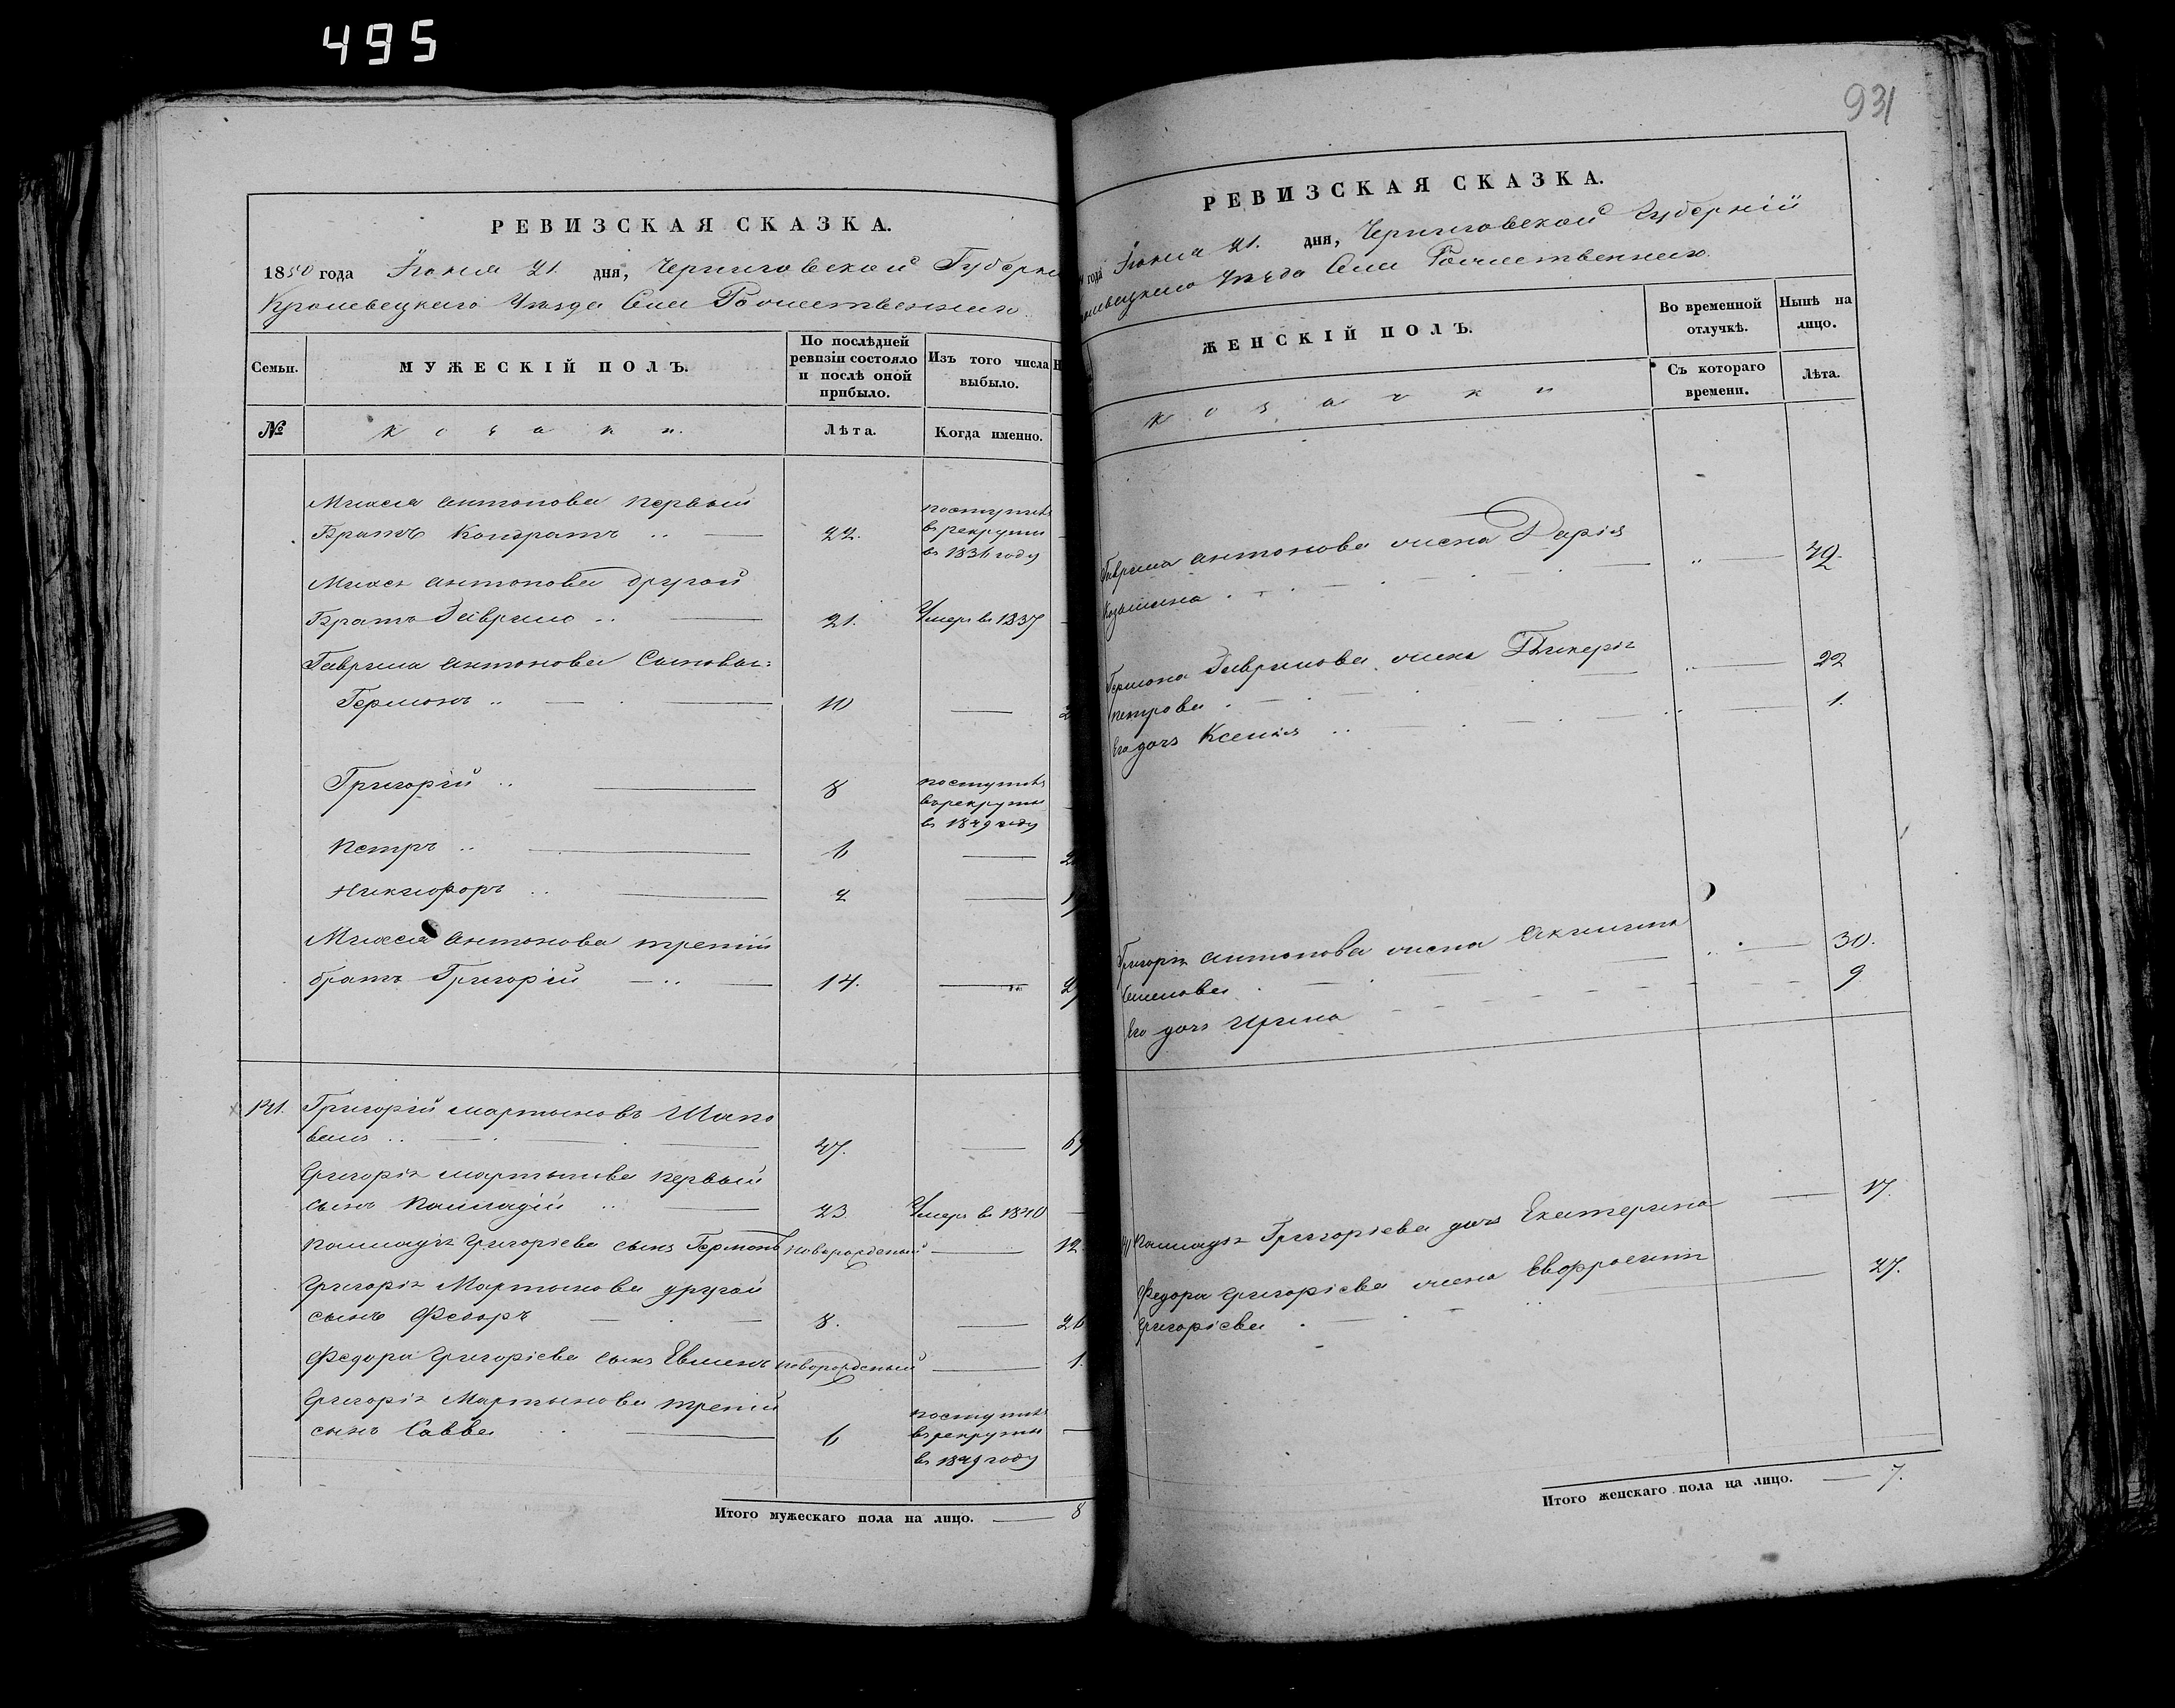 495
931
РЕВИЗСКАЯ СКАЗКА.
1850 года Іюня 21. дня, Черниговской Губерни
Кролевецкаго Уѣзда Села Рожественнаго.
Семьи. МУЖЕСКІЙ ПОЛЪ. По послѣдней ревизіи состояло и послѣ оной прибыло. Изъ того числа выбыло. Н
№ Козаки. Лѣта. Когда именно.
Михея Антонова первый поступилъ
Братъ Кондратъ .. 22. въ рекруты
въ 1831 году
Михея Антонова другой
Братъ Гаврило .. 21. Умеръ въ 1837
Гаврила Антонова Сыновья:
Гермонъ .. 10 — 2
Григорій .. 8 поступилъ
въ рекруты
въ 1849 году
Петръ .. 6 — 2
Никифоръ .. 2 — 1
Михея Антонова третій
братъ Григорій .. 14. — 2
121. Григорій Мартыновъ Шапо
валъ .. 47. — 6
Григорія Мартынова первый
сынъ Палладій .. 23. Умеръ въ 1840 —
Палладія Григоріева сынъ Гермонъ новорожденый — 12
Григорія Мартынова другой
сынъ Федоръ 8. — 26
Федора Григоріева сынъ Евменъ новорожденый — 1.
Григорія Мартынова третій поступилъ
сынъ Савва 6 въ рекруты —
въ 1849 году
Итого мужескаго пола на лицо. — 8
РЕВИЗСКАЯ СКАЗКА.
года Іюня 21. дня, Черниговской Губерніи
Уѣзда Села Рожественнаго.
ЖЕНСКІЙ ПОЛЪ. Во временной отлучкѣ. Нынѣ на лицо.
Козачки Съ котораго времени. Лѣта.
Гаврила Антонова жена Дарія
Козьмина .. — 42.
Гермона Гаврилова жена Гликерія
Петрова .. — 22
Его дочь Ксенія .. — 1.
Григорія Антонова жена Акилина
Семенова .. — 30.
Его дочь Ирина 9
Палладія Григоріева дочь Екатерина — 17.
Федора Григоріева жена Евфросинія
Григоріева — 27.
Итого женскаго пола на лицо. — 7.